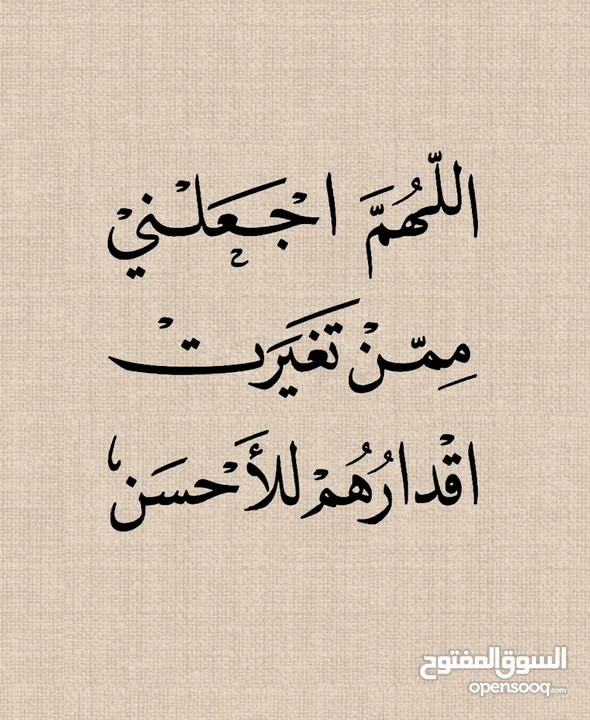 اللّهُمَّ اجْعَلْني
مِمّنْ تغَيَرَت
اقْدارُهُمْ للأَحْسَن
السوق المفتوح
opensooq.com